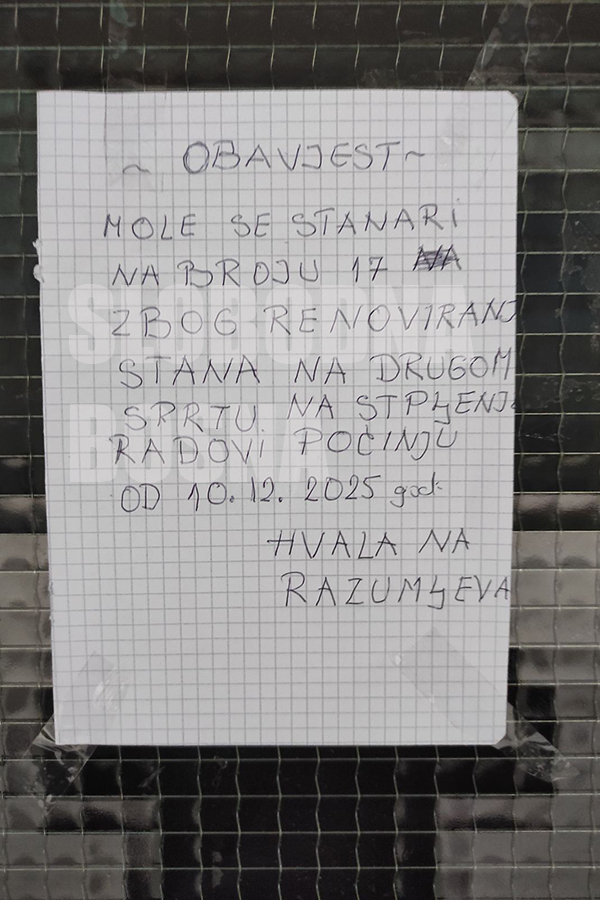 ~ OBAVJEST ~
MOLE SE STANARI
NA BROJU 17
ZBOG RENOVIRANJ
STANA NA DRUGOM
SPRTU NA STPLJENJ
RADOVI POČINJU
OD 10.12. 2025 god.
HVALA NA
RAZUMJEVA
SLOBODNA
BOSNA